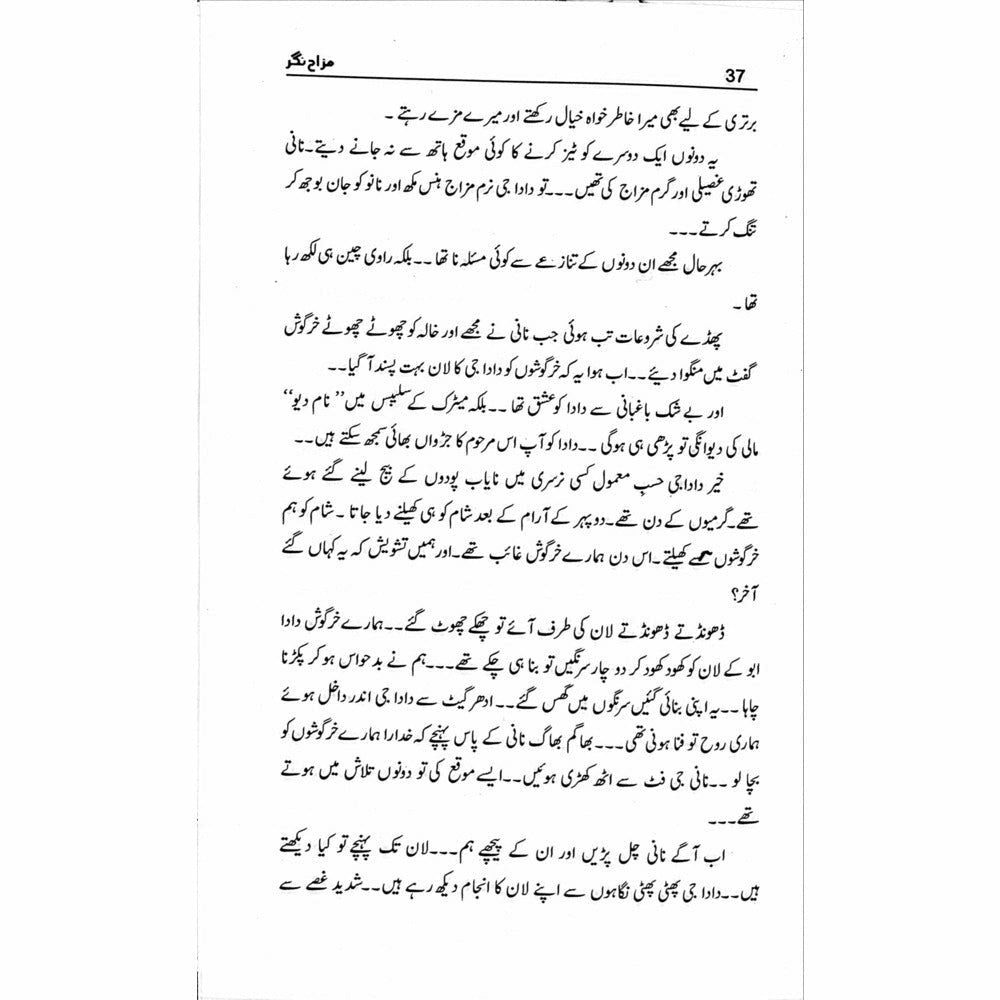 مزاح نگر
37
برتری کے لیے بھی میرا خاطر خواہ خیال رکھتے اور میرے مزے رہتے ۔
یہ دونوں ایک دوسرے کو ٹیز کرنے کا کوئی موقع ہاتھ سے نہ جانے دیتے۔نانی
تھوڑی غصیلی اور گرم مزاج کی تھیں۔۔۔تو دادا جی نرم مزاج ہنس مکھ اور نانو کو جان بوجھ کر
تنگ کرتے۔۔۔
بہر حال مجھے ان دونوں کے تنازعے سے کوئی مسئلہ نا تھا ۔۔بلکہ راوی چین ہی لکھ رہا
تھا ۔
پھڈے کی شروعات تب ہوئی جب نانی نے مجھے اور خالہ کو چھوٹے چھوٹے خرگوش
گفٹ میں منگوا دیئے ۔۔اب ہوا یہ کہ خرگوشوں کو دادا جی کا لان بہت پسند آ گیا۔۔
اور بے شک باغبانی سے دادا کو عشق تھا ۔۔بلکہ میٹرک کے سلیبس میں’’ نام دیو‘‘
مالی کی دیوانگی تو پڑھی ہی ہوگی ۔۔دادا کو آپ اس مرحوم کا جڑواں بھائی سمجھ سکتے ہیں۔۔
خیر دادا جی حسبِ معمول کسی نرسری میں نایاب پودوں کے بیج لینے گئے ہوئے
تھے۔گرمیوں کے دن تھے۔دوپہر کے آرام کے بعد شام کو ہی کھیلنے دیا جاتا ۔شام کو ہم
خرگوشوں سے کھیلتے ۔اس دن ہمارے خرگوش غائب تھے۔اور ہمیں تشویش کہ یہ کہاں گئے
آخر؟
ڈھونڈتے ڈھونڈتے لان کی طرف آئے تو چھکے چھوٹ گئے۔۔ہمارے خرگوش دادا
ابو کے لان کو کھود کھود کر دو چار سرنگیں تو بنا ہی چکے تھے۔۔۔ہم نے بدحواس ہو کر پکڑنا
چاہا ۔۔یہ اپنی بنائی گئیں سرنگوں میں گھس گئے۔۔ادھر گیٹ سے دادا جی اندر داخل ہوئے
ہماری روح تو فنا ہونی تھی۔۔۔بھاگم بھاگ نانی کے پاس پہنچے کہ خدارا ہمارے خرگوشوں کو
بچا لو ۔۔نانی جی فٹ سے اٹھ کھڑی ہوئیں۔۔ایسے موقع کی تو دونوں تلاش میں ہوتے
تھے۔۔۔
اب آگے نانی چل پڑیں اور ان کے پیچھے ہم۔۔۔لان تک پہنچے تو کیا دیکھتے
ہیں۔۔دادا جی پھٹی پھٹی نگاہوں سے اپنے لان کا انجام دیکھ رہے ہیں۔۔شدید غصے سے